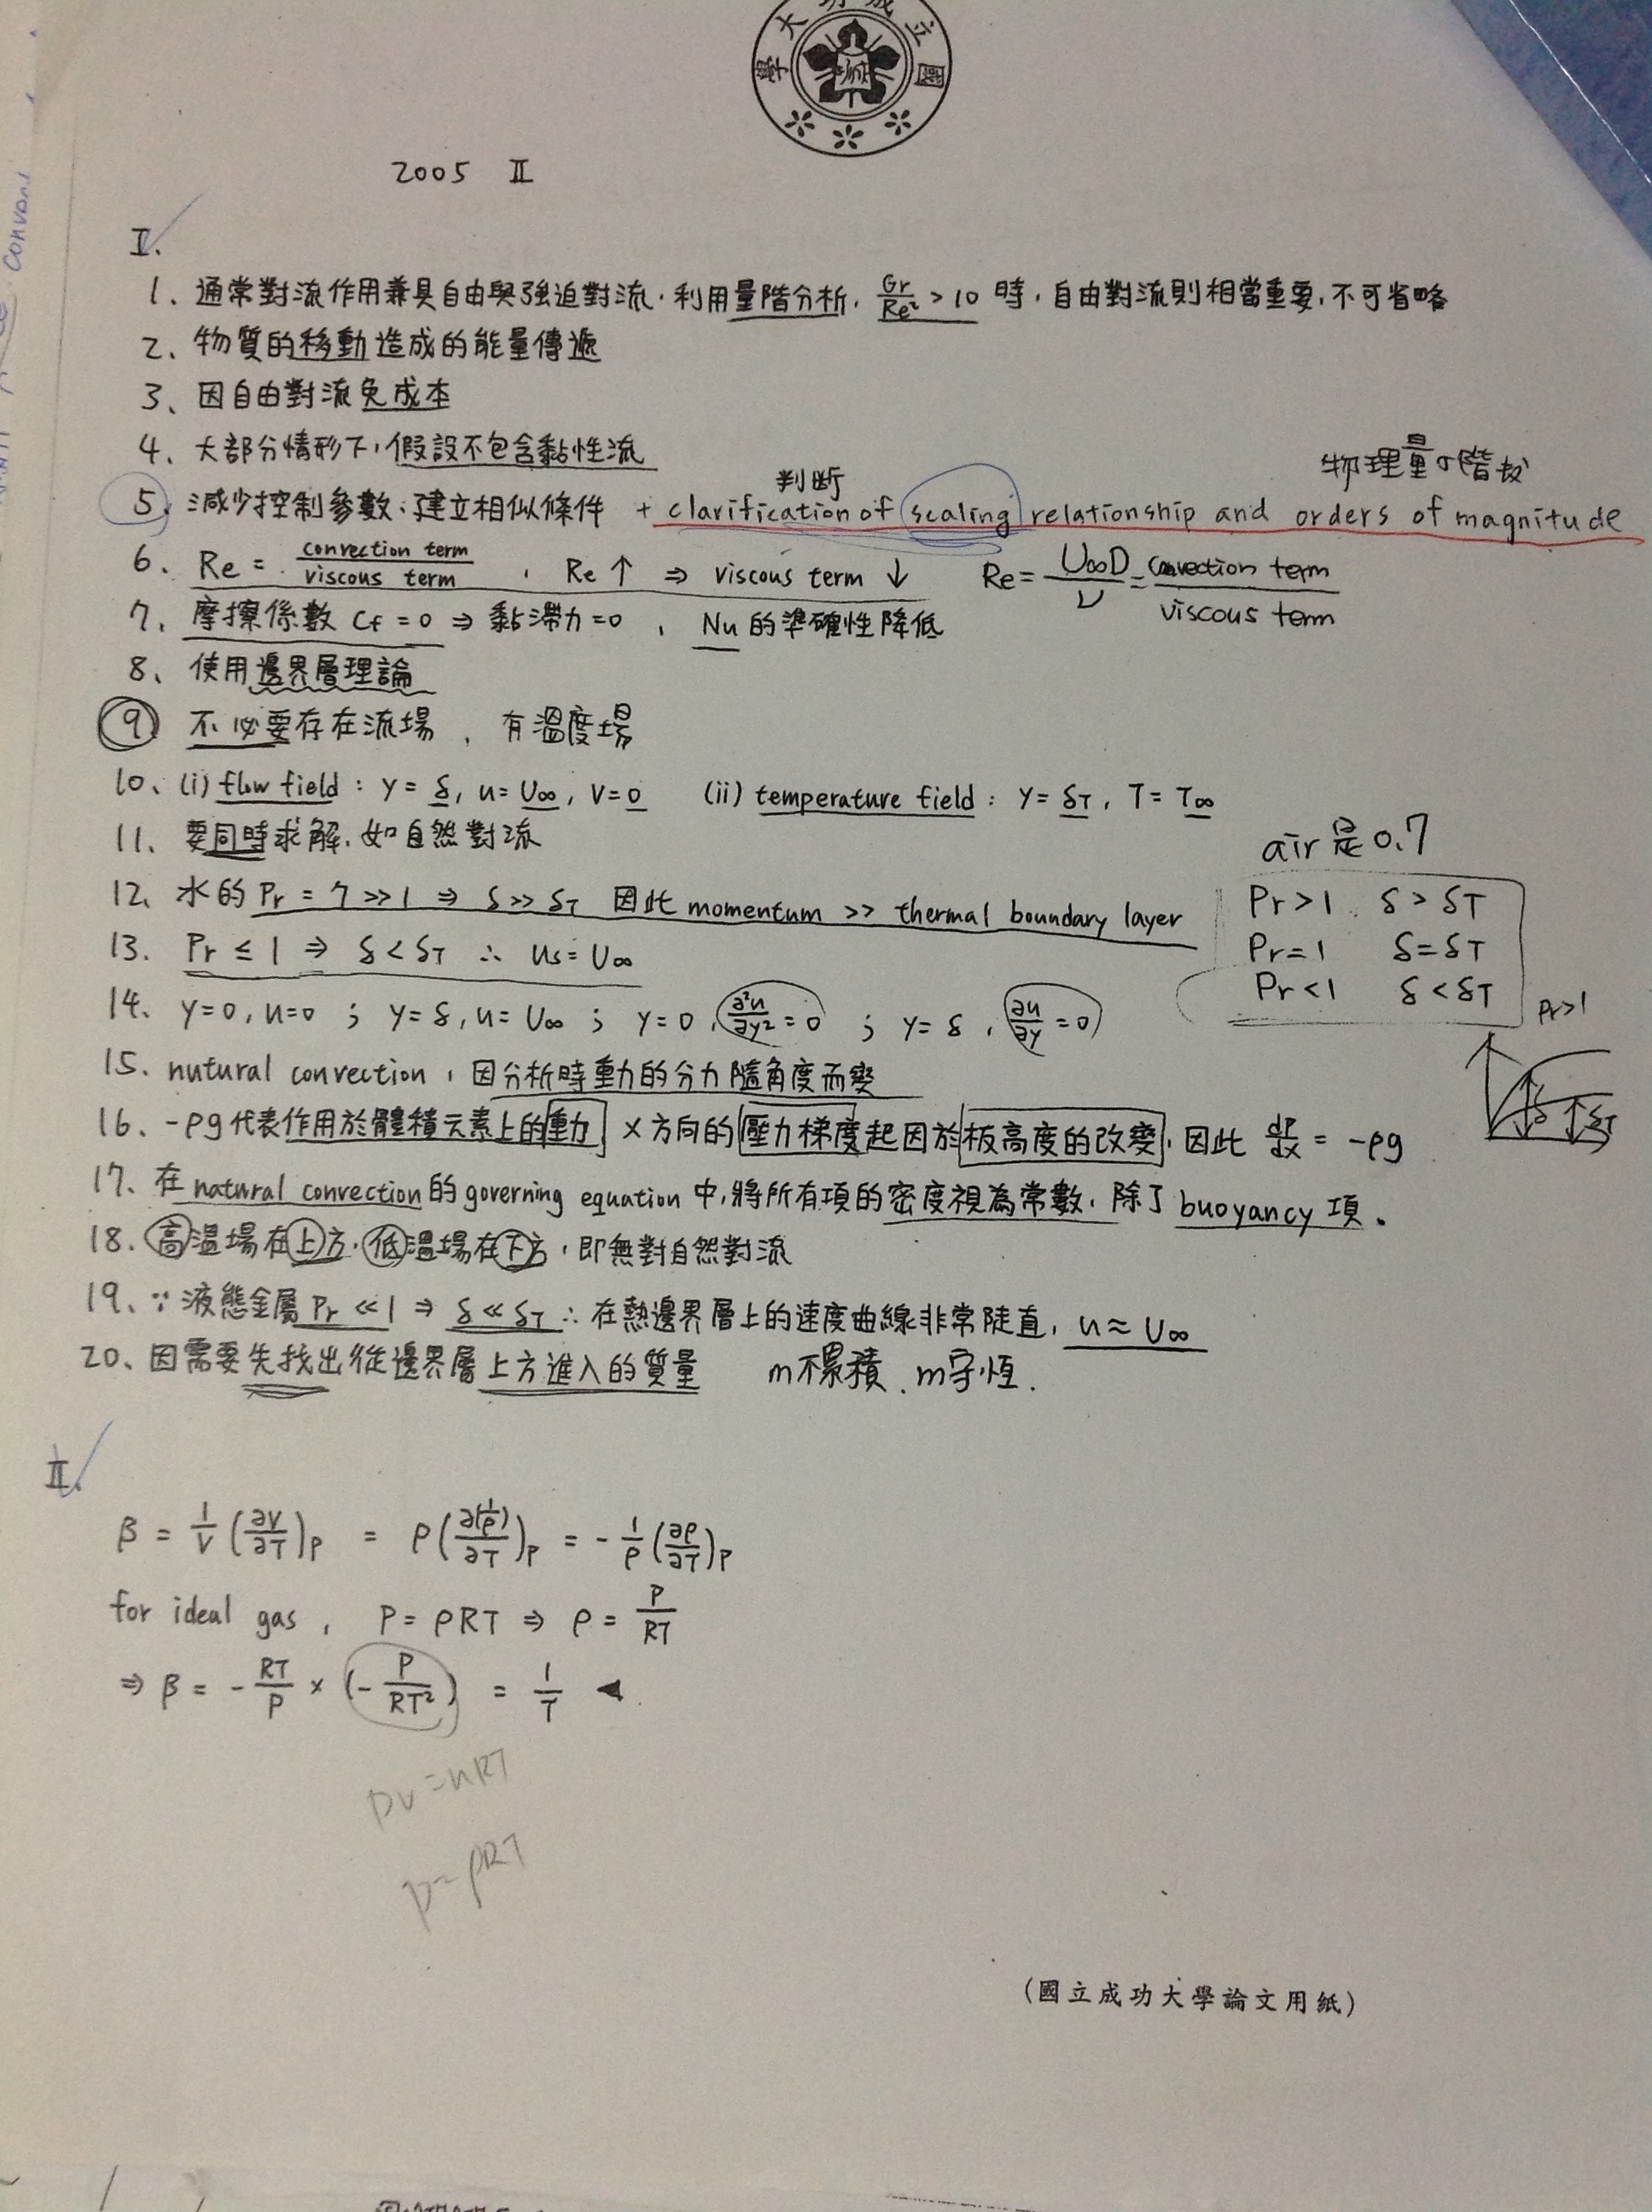 國立成功大學
2005 II
I.
1、通常對流作用兼具自由與強迫對流，利用量階分析，Gr/Re² > 10 時，自由對流則相當重要，不可省略
2、物質的移動造成的能量傳遞
3、因自由對流免成本
4、大部分情形下，假設不包含黏性流
物理量の階拔
判断
5、減少控制參數、建立相似條件 + clarification of scaling relationship and orders of magnitude
6、Re = convection term / viscous term , Re ↑ ⇒ viscous term ↓ Re = U∞D/ν = convection term / viscous term
7、摩擦係數 Cf = 0 ⇒ 黏滯力 = 0 , Nu 的準確性降低
8、使用邊界層理論
9 不必要存在流場 , 有溫度場
10、(i) flow field : y = δ, u = U∞, v = 0 (ii) temperature field : y = δT, T = T∞
11、要同時求解，如自然對流
air 是 0.7
12、水的 Pr = 7 >> 1 ⇒ δ >> δT 因此 momentum >> thermal boundary layer
Pr > 1 δ > δT
Pr = 1 δ = δT
Pr < 1 δ < δT
13、Pr ≤ 1 ⇒ δ < δT ∴ us = U∞
14、y=0, u=0 ; y=δ, u=U∞ ; y=0, ∂²u/∂y² = 0 ; y=δ, ∂u/∂y = 0
Pr>1
δ δT
15、nutural convection，因分析時重力的分力隨角度而變
16、-ρg 代表作用於體積元素上的重力 x方向的壓力梯度起因於板高度的改變，因此 dp/dx = -ρg
17、在 natural convection 的 governing equation 中，將所有項的密度視為常數，除了 buoyancy 項。
18、高溫場在上方，低溫場在下方，即無對自然對流
19、∵ 液態金屬 Pr << 1 ⇒ δ << δT ∴ 在熱邊界層上的速度曲線非常陡直，u ≈ U∞
20、因需要先找出從邊界層上方進入的質量 m不累積、m守恆.
II.
β = 1/V (∂V/∂T)P = ρ(∂(1/ρ)/∂T)P = - 1/ρ (∂ρ/∂T)P
for ideal gas , P = ρRT ⇒ ρ = P/RT
⇒ β = - RT/P × (- P/RT²) = 1/T
pv = nRT
p = ρRT
(國立成功大學論文用紙)